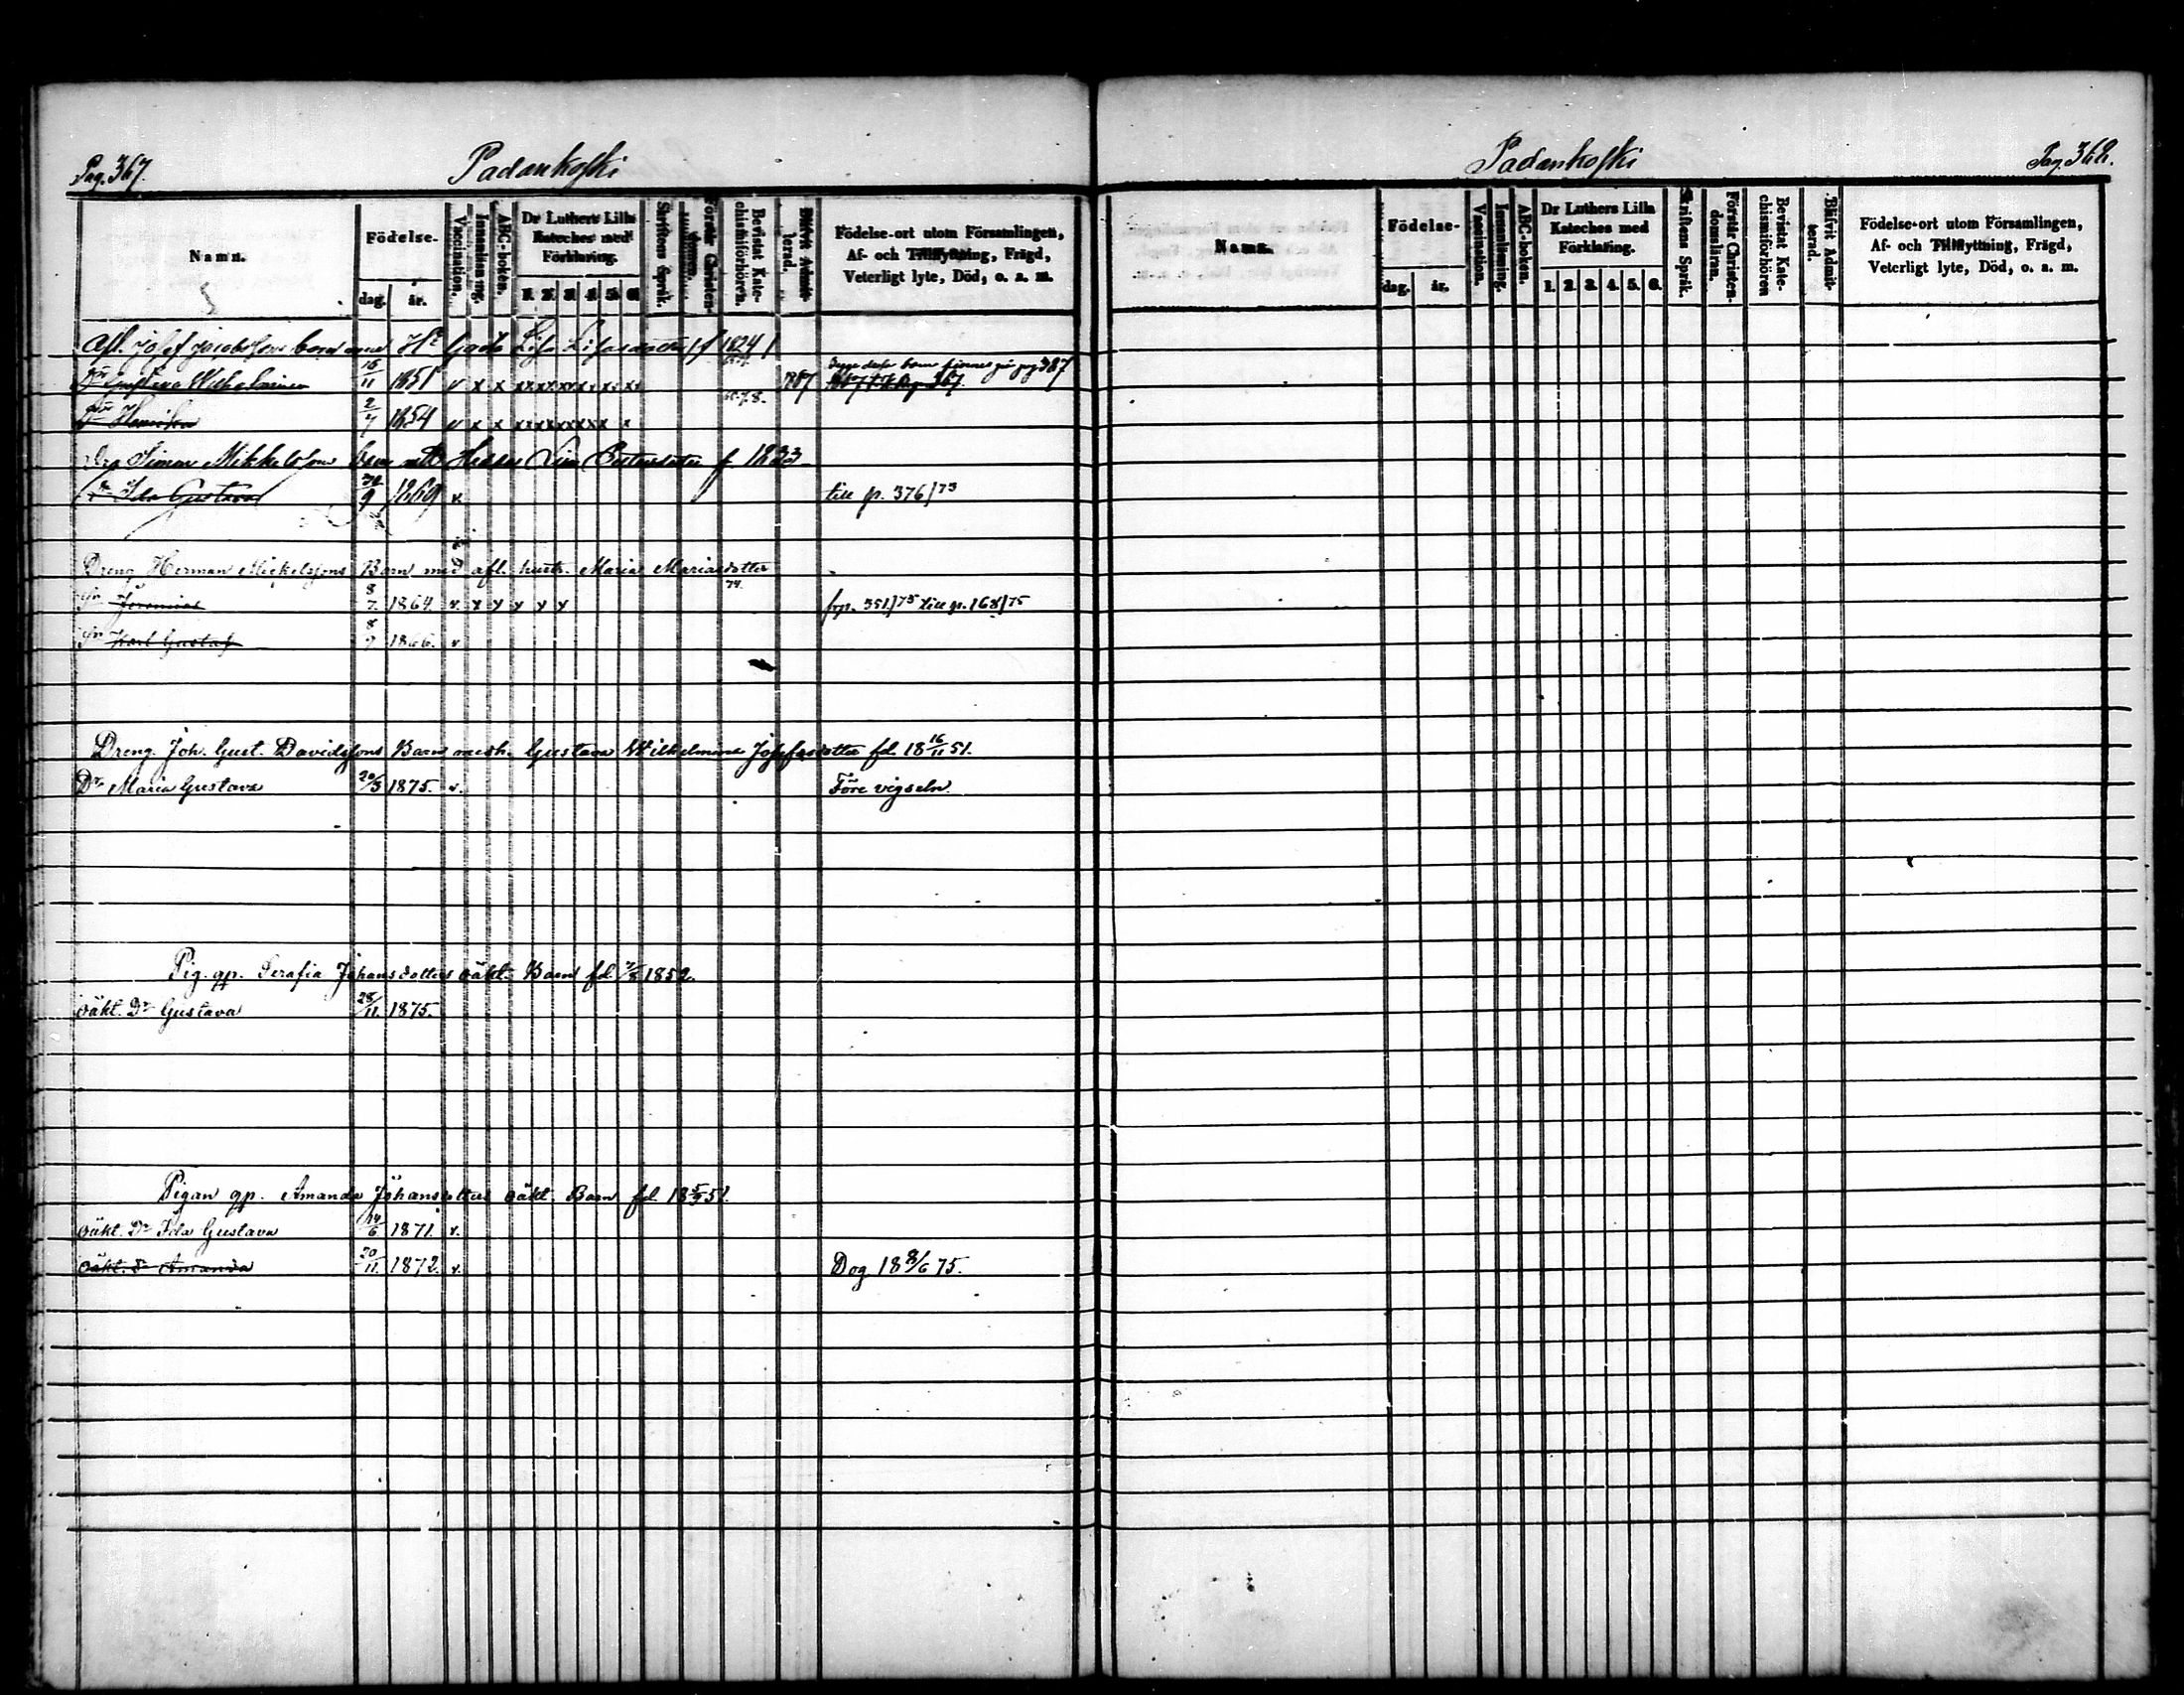 Pag. 367.
Padankoski
Namn.
Födelse-
dag.
år.
Vaccination.
Innanläsning.
ABC-boken.
Dr Luthers Lilla
Kateches med
Förklaring.
1. 2. 3. 4. 5. 6.
Skriftens Språk.
Förstår Christen-
domsläran.
Bevistat Kate-
chismiförhören.
Blifvit Admit-
terad.
Födelse-ort utom Församlingen,
Af- och Tillflyttning, Frägd,
Veterligt lyte, Död, o. a. m.
Afl. Josef Jacobssons barn med Lisa f 1824
Gustava Wilhelmina 16/11 1851 v x x x x x x x x x 387
Bägge dessa barn finnes på pag 387
2/7 1854 v x x x x x x x x x
Drg Simon Mikkelssons barn f 1833
Dr Ida Gustava 9 1869 v. till p. 376/73
Dreng Herman Mickelssons Barn med afl. hustr. Maria Mariasdotter
Sn Jeremias 8/7 1864 v. x x x x x 74. frp. 351/75 till p. 168/75
Sn Karl Gustaf 8/7 1866. v
Dreng. Joh. Gust. Davidssons Barn med h. Gustava Wilhelmina Josefsdotter fd. 18 16/11 51.
Dr Maria Gustava 20/3 1875. v. Före vigseln.
Pig. qp. Serafia Johansdotters oäkt. Barn fd 1852.
oäkt. Dr Gustava 28/11. 1875.
Pigan qp. Amanda Johansdotters oäkt. Barn fd. 18 5/9 51.
oäkt. Dr Ida Gustava 14/6 1871. v.
oäkt. Dr Amanda 20/11. 1872. v. Dog 18 8/6 75.
Padankoski
Pag. 368.
Namn.
Födelse-
dag.
år.
Vaccination.
Innanläsning.
ABC-boken.
Dr Luthers Lilla
Kateches med
Förklaring.
1. 2. 3. 4. 5. 6.
Skriftens Språk.
Förstår Christen-
domsläran.
Bevistat Kate-
chismiförhören
Blifvit Admit-
terad.
Födelse-ort utom Församlingen,
Af- och Tillflyttning, Frägd,
Veterligt lyte, Död, o. a. m.